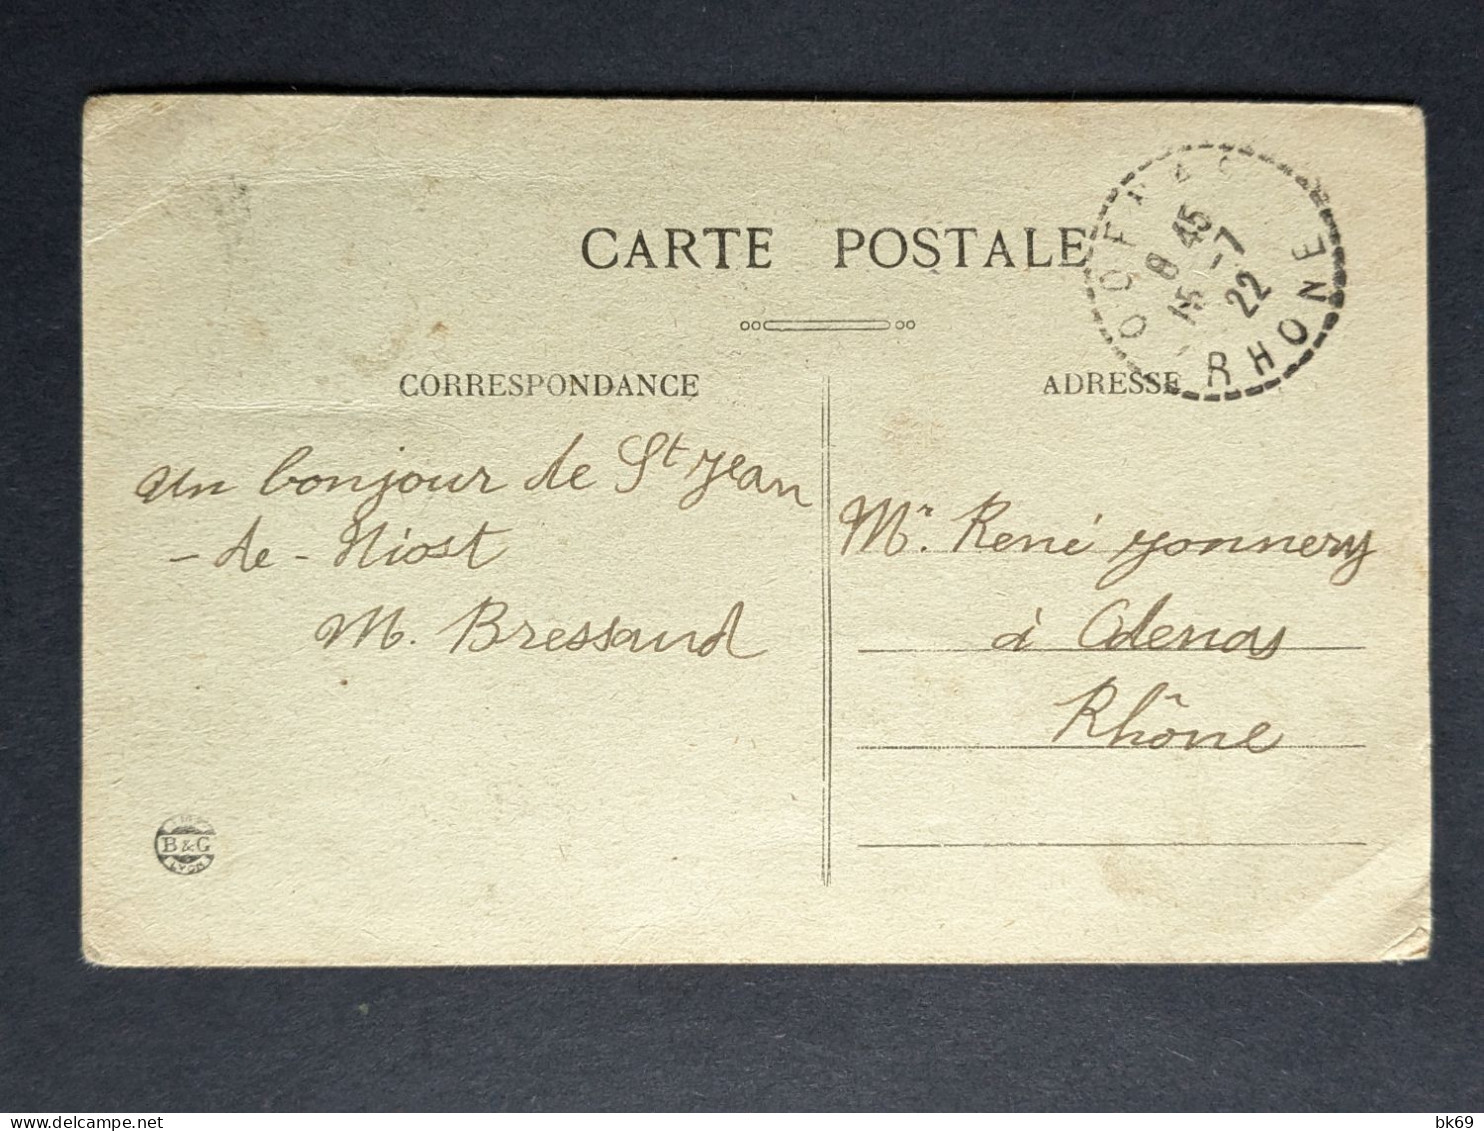 CARTE POSTALE
CORRESPONDANCE
ADRESSE
8 45
15 -7
22
RHONE
un bonjour de St Jean
- de - Niost
M. Bressand
Mr. René Yonnery
à Odenas
Rhône
B & G
LYON
bk69